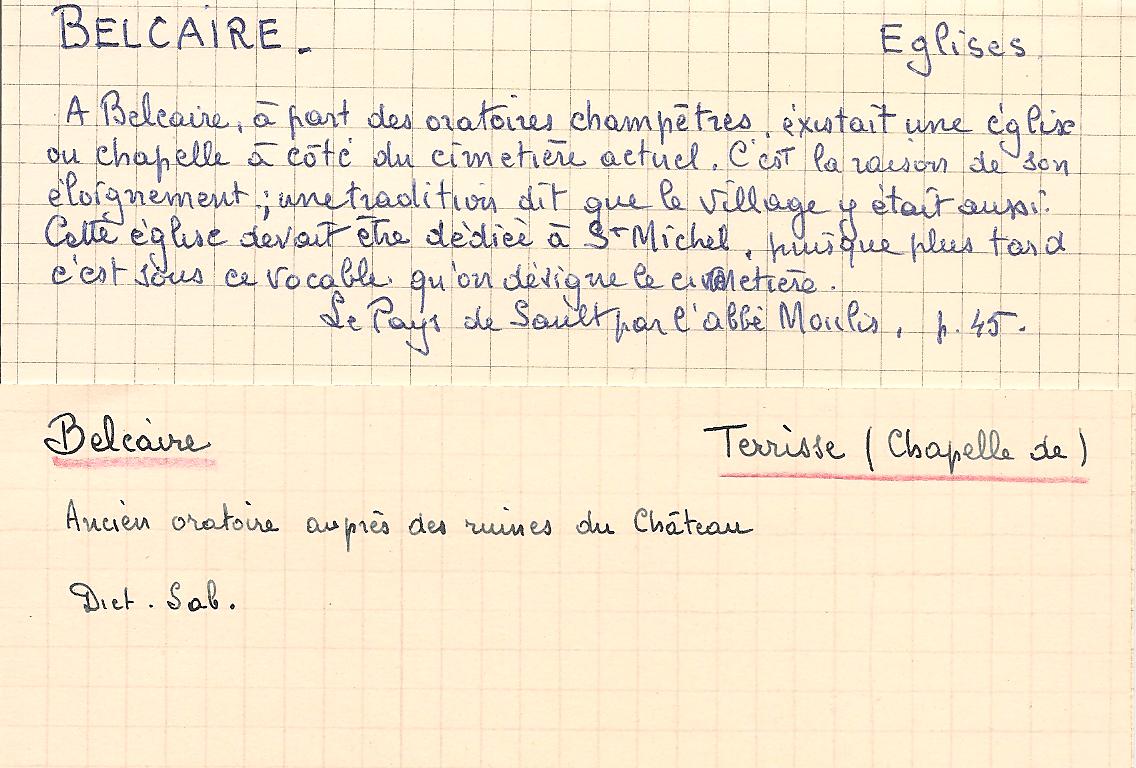 BELCAIRE. Eglises
A Belcaire, à part des oratoires champêtres, éxistait une église
ou chapelle à côté du cimetière actuel. C'est la raison de son
éloignement ; une tradition dit que le village y était aussi.
Cette église devait être dédiée à St Michel, puisque plus tard
c'est sous ce vocable qu'on désigne le cimetière.
Le Pays de Sault par l'abbé Moulis, p. 45.
Belcaire Terrisse (Chapelle de)
Ancien oratoire auprès des ruines du Château
Dict. Sab.